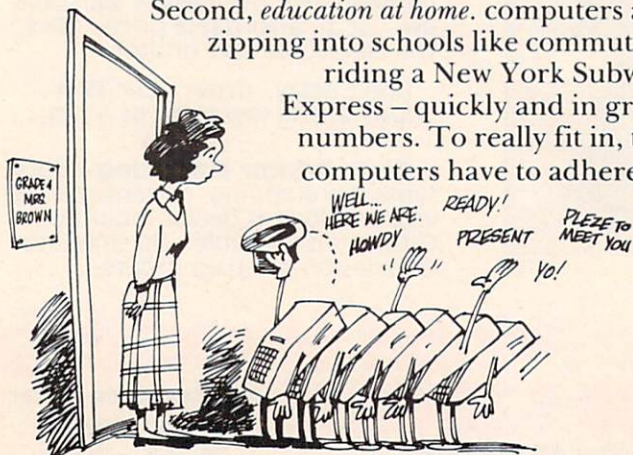 Second, education at home. computers a
zipping into schools like commut
riding a New York Subw
Express – quickly and in gr
numbers. To really fit in, t
computers have to adhere
GRADE 4
MRS.
BROWN
WELL...
HERE WE ARE.
HOWDY
READY!
PRESENT
YO!
PLEZE TO
MEET YOU